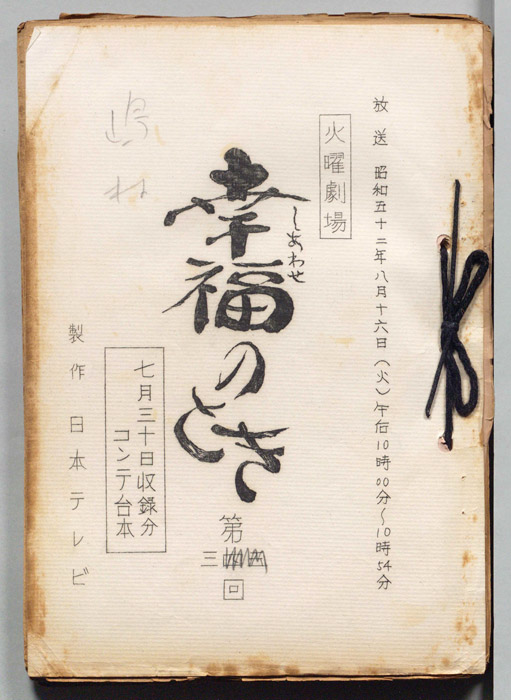 放送 昭和五十二年八月十六日(火)午后10時00分〜10時54分
火曜劇場
幸福のとき
しあわせ
第三回
七月三十日収録分
コンテ台本
製作 日本テレビ